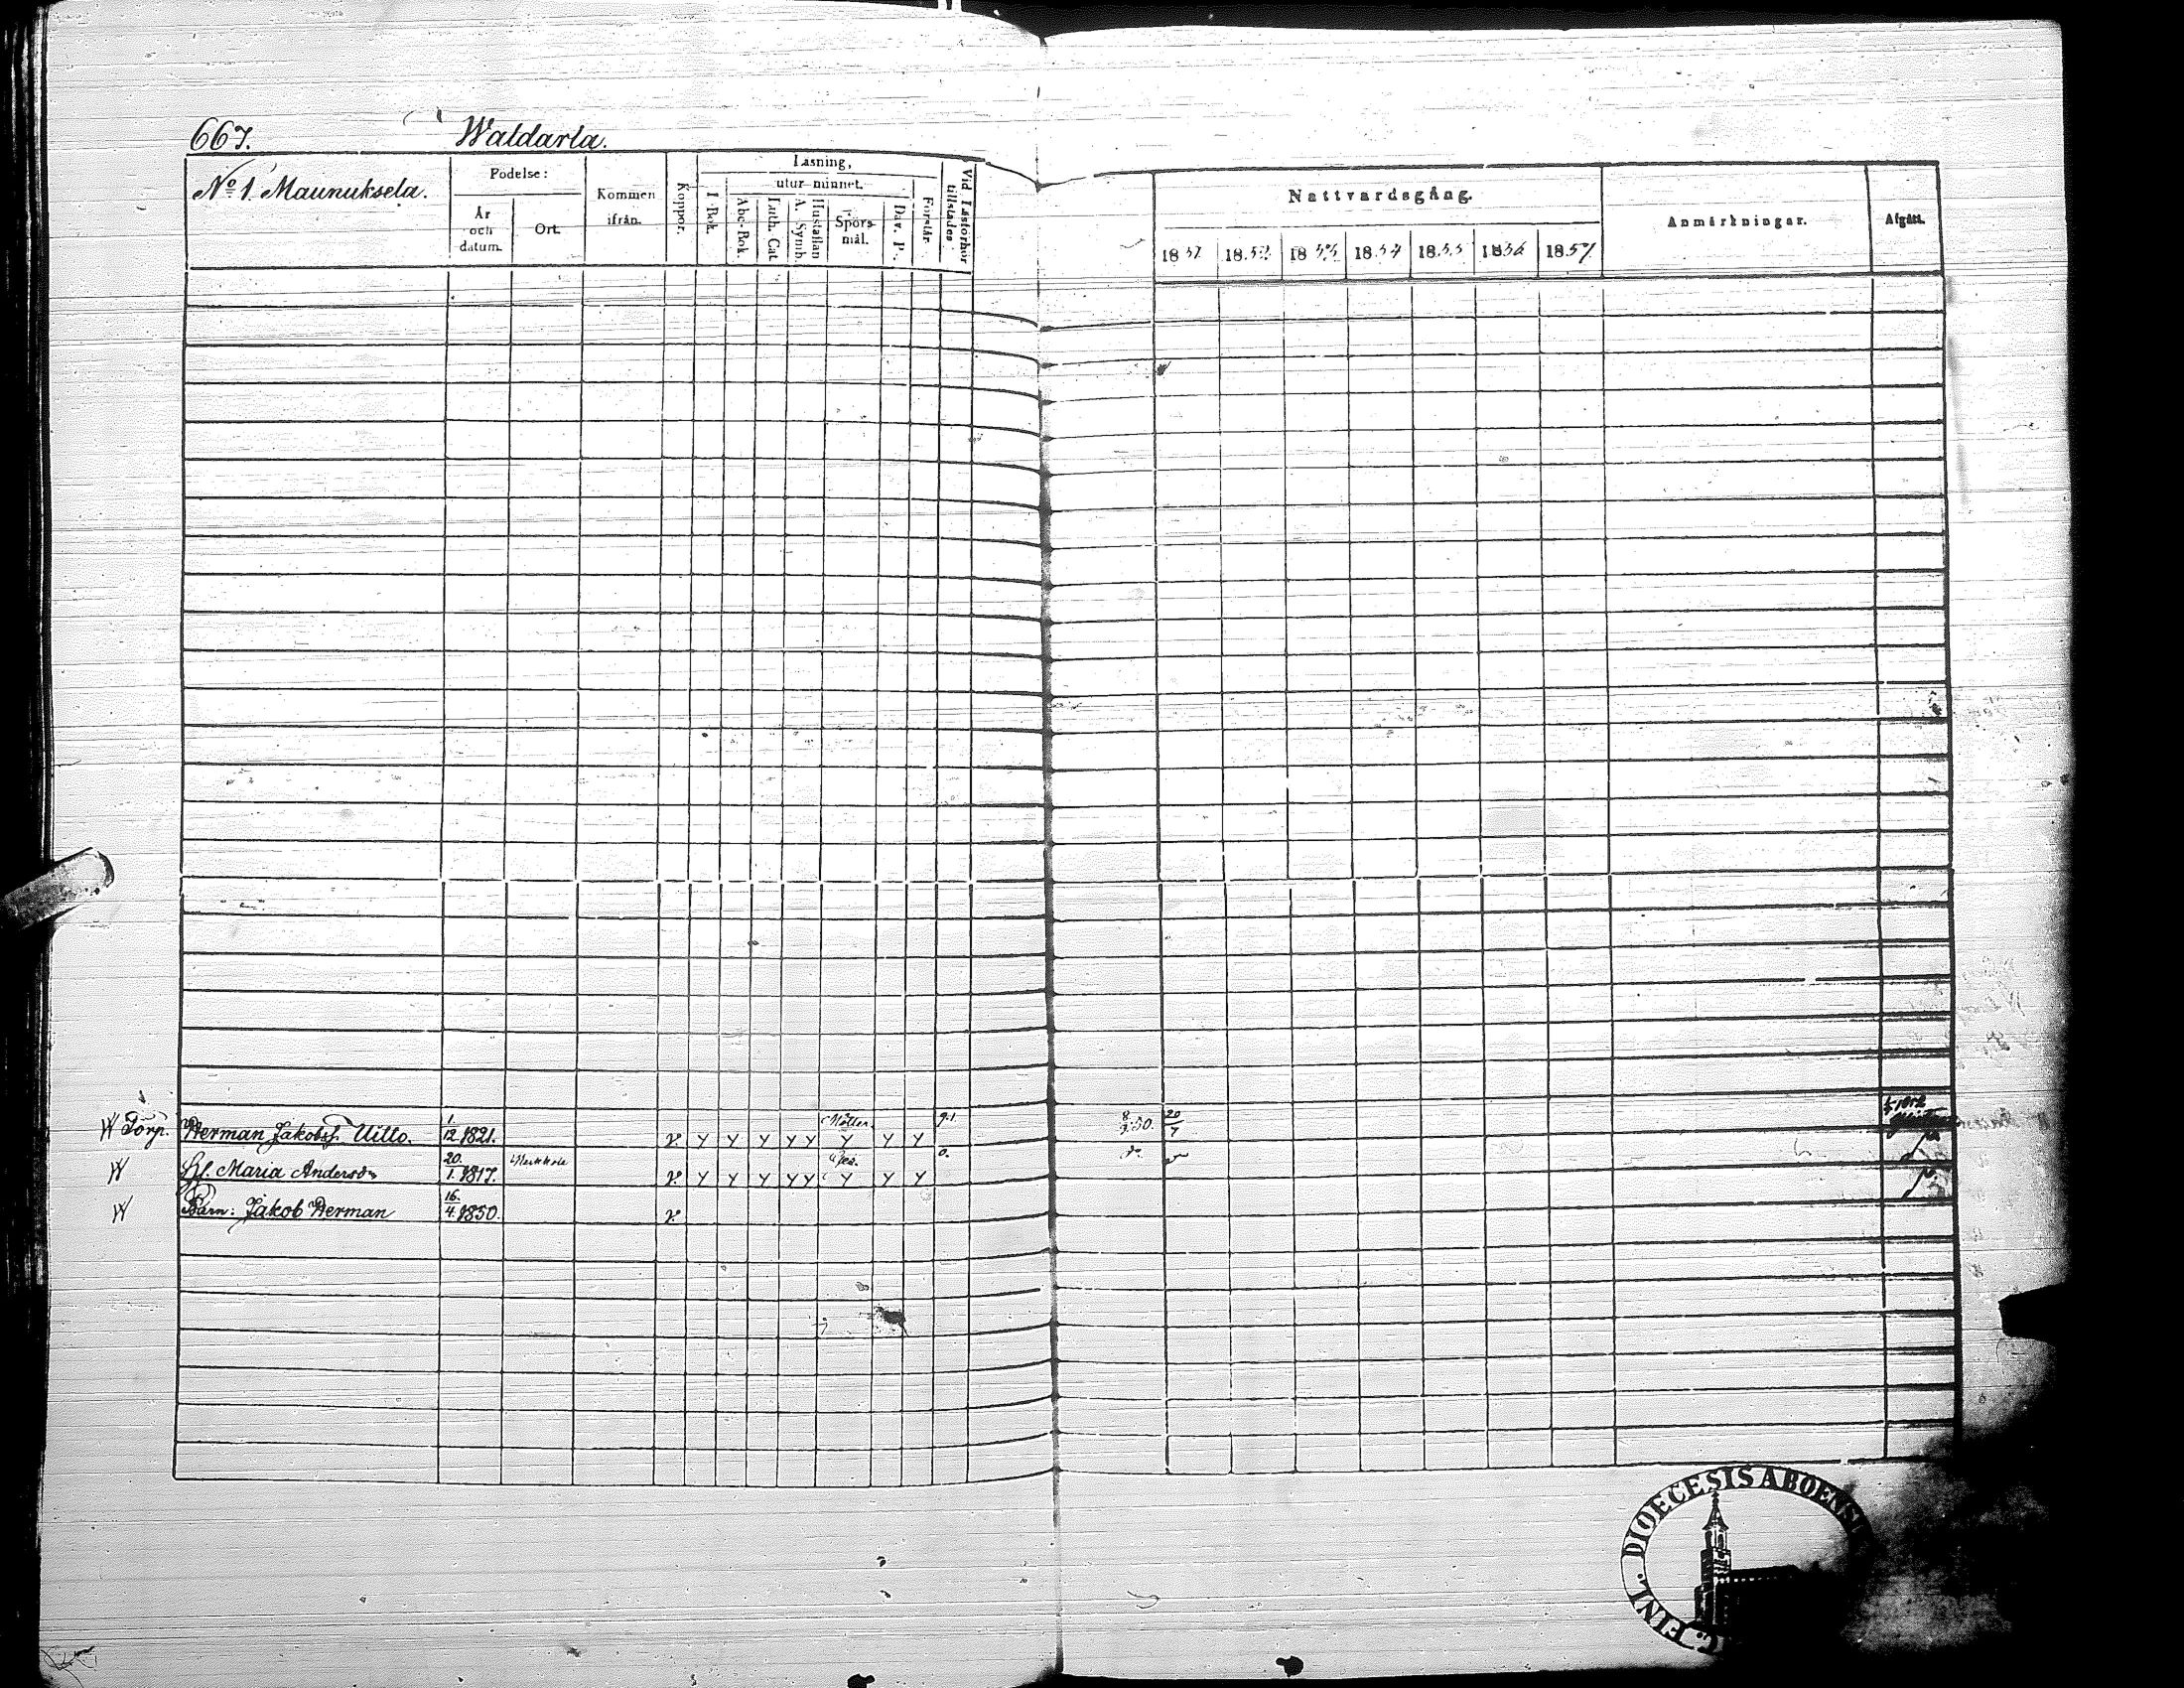 667. Waldarla.
No 1. Maunuksela.
Födelse:
År och datum.
Ort.
Kommen ifrån.
Koppor.
Läsning,
I Bok.
utur minnet.
Abc-Bok.
Luth. Cat
A. Symb.
Hustaflan
Spörs-mål.
Dav. Ps.
Förstår
Vid Läsförhör tillstädes
Nattvardsgång.
1851 1852 1853 1854 1855 1856 1857
Anmärkningar.
Afgått.
W Torp. Herman Jakobss. Uitto. 1/12 1821. v. y y y y y y y y 8/9 50. 20/7
W H. Maria Andersdr 20/1. 1817. v. y y y y y y y y
W Barn: Jakob Herman 16/4. 1850. v.
DIOECESIS ABOENSI
FINL.